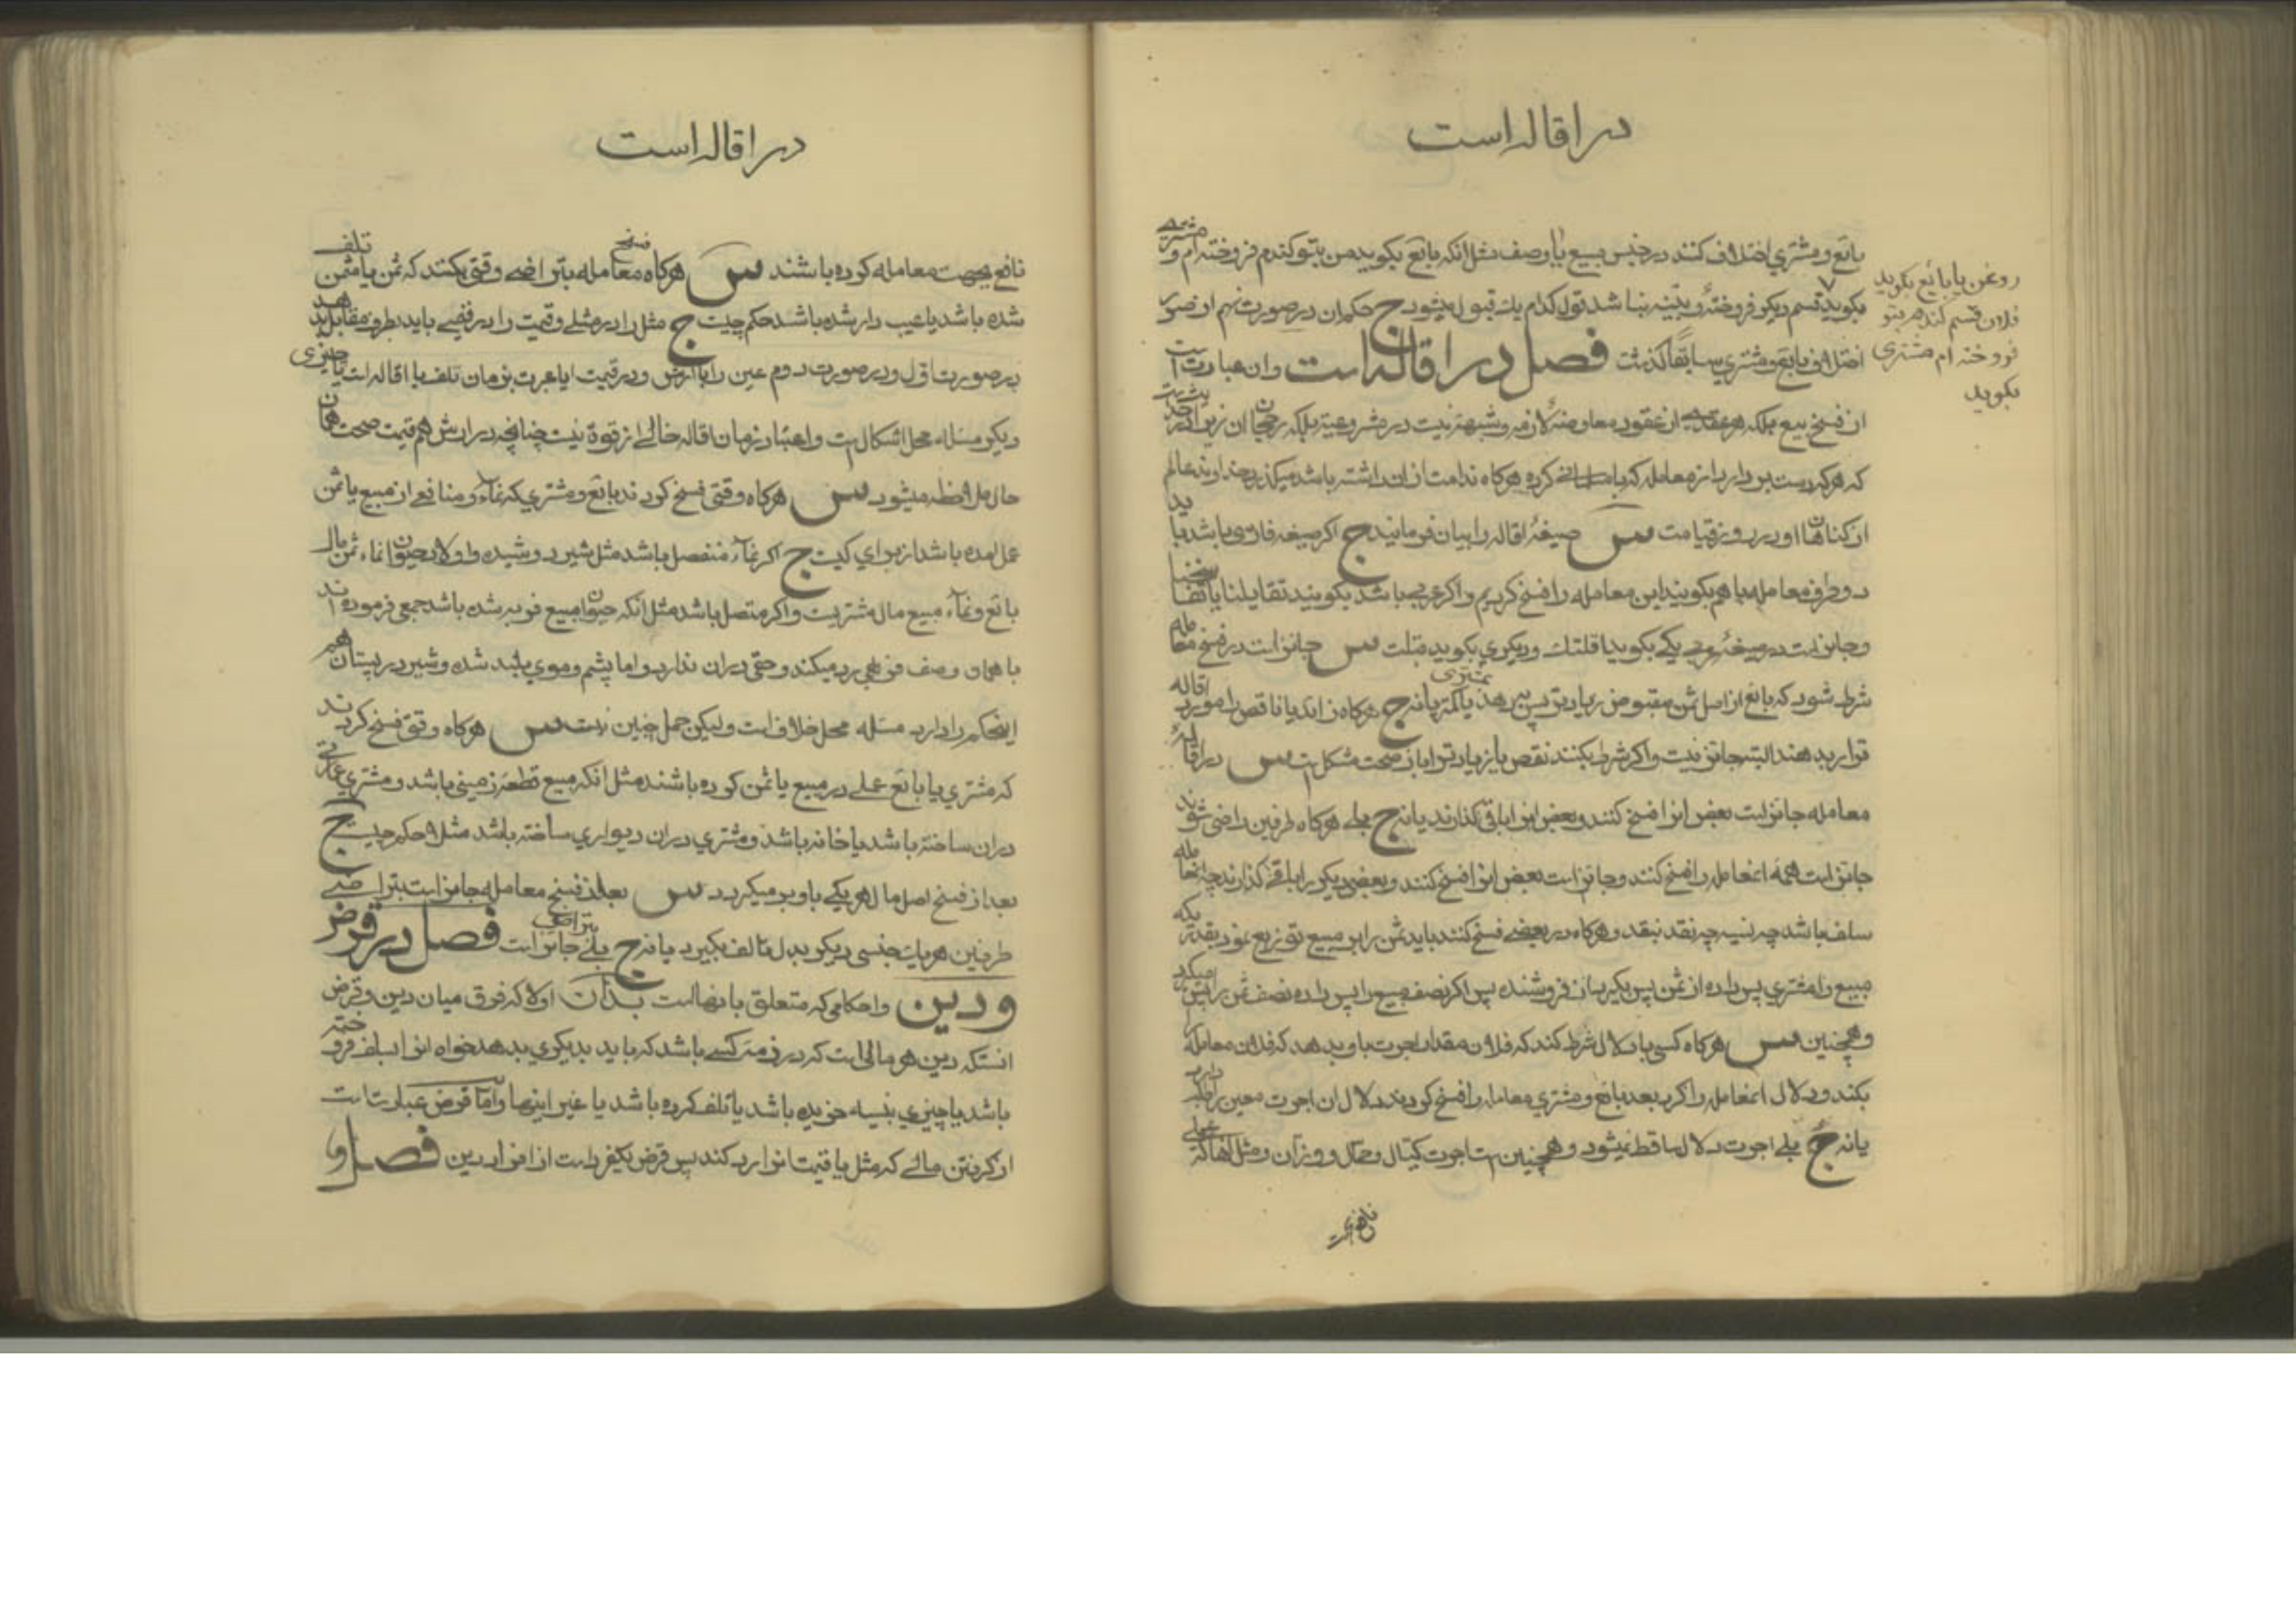 در اقاله است
بائع و مشتري اختلاف کنند در جنس مبیع یا وصف مثل انکه بائع بکوید من بتو کندم فروخته ام و مشتري
بکوید قسم دیکر فروختهٔ و بیّنه نباشد قول کدام یك قبول میشود ج حکم ان در صورت
اختلاف بائع و مشتري سابقًا کذشت فصل در اقاله است وان عبارت است
از فسخ بیع بلکه هر عقدي از عقود معاوضهٔ لازمه و شبهة نیست در مشروعیة بلکه رجحان ان زیرا که
که هرکه دست بر دارد از معامله که با کرده هرکاه ندامت از ان داشته باشد میکذرد خداوند عالم
از کناهان او در روز قیامت س صیغهٔ اقاله را بیان فرمائید ج اکر صیغه فارسی باشد باید
دو طرف معامله با هم بکویند این معامله را فسخ کردیم و اکر عربی باشد بکویند تقایلنا یا تفاسخنا
و جائز است در صیغهٔ عربی یکي بکوید اقلتك و دیکري بکوید قبلت س جائز است در فسخ معامله
شرط شود که بائع از اصل ثمن مقبوض زیادتر پس بدهد یا کمتر یا نه ج هرکاه زائد یا ناقص را مورد اقاله
قرار بدهند البته جائز نیست و اکر شرط بکنند نقص یا زیادتر را باز صحت مشکل است س در اقالهٔ
معامله جائز است بعض انرا فسخ کنند و بعض انرا باقی کذارند یا نه ج بلي هرکاه طرفین راضی شوند
جائز است همهٔ انمعامله را فسخ کنند و جائز است بعض انرا فسخ کنند و بعض دیکر را باقی کذارند چه انمعامله
سلف باشد چه نسیه چه نقد بنقد و هرکاه در بعضي فسخ کنند باید ثمن را بر مبیع توزیع نمود بقدریکه
مبیع را مشتري پس داده از ثمن پس بکیرد از فروشنده پس اکر نصف مبیع را پس داده نصف ثمن را پس میکیرد
و همچنین س هرکاه کسی با دلال شرط کند که فلان مقدار اجرت باو بدهد که فلان معامله
بکند و دلال انمعامله را کرد بعد بائع و مشتري معامله را فسخ کردند دلال ان اجرت معین را طلب دارد
یا نه ج بلي اجرت دلال ساقط نمیشود و همچنین است اجرت کیّال و حمّال و وزّان و مثل انها که عملي
نافع بجهت
روغن یا بائع بکوید
فلان قسم کندم بتو
فروخته ام مشتری
بکوید
در اقاله است
نافع بجهت معامله کرده باشند س هرکاه فسخ معامله بتراضي وقتی بکنند که ثمن یا مثمن تلف
شده باشد یا عیب دار شده باشد حکم چیست ج مثل را در مثلي و قیمت را در قیمي باید بطرف مقابل بدهد
در صورت اول و در صورت دوم عین را با ارش و در قیمت ایا عبرت بزمان تلف یا اقاله است یا چیزی
دیکر مسئله محل اشکال است و اعتبار زمان اقاله خالي از قوة نیست چنانچه در ارش هم قیمت صحت همان
حال ملاحظه میشود س هرکاه وقتی فسخ کردند بائع و مشتري که نماء و منافع از مبیع یا ثمن
عمل امده باشد از براي کیست ج اکر نماء منفصل باشد مثل شیر دوشیده و اولاد حیوان نماء ثمن مال
بائع و نماء مبیع مال مشتریست و اکر متصل باشد مثل انکه حیوان مبیع فربه شده باشد جمعی فرموده اند
با همان وصف فربهی رد میکند و حقی در ان ندارد و اما پشم و موي بلند شده و شیر در پستان هم
اینحکم را دارد مسئله محل خلاف است و لیکن حمل چنین نیست س هرکاه وقتی فسخ کردند
که مشتري یا بائع عملي در مبیع یا ثمن کرده باشند مثل انکه مبیع قطعهٔ زمینی باشد و مشتري عمارتی
در ان ساخته باشد یا خانه باشد و مشتري در ان دیواري ساخته باشد مثلا حکم چیست ج
بعد از فسخ اصل مال هر یکي باو بر میکردد س بعد از فسخ معامله جائز است بتراضي
طرفین هریك جنسی دیکر بدل تالف بکیرد یا نه ج بلي بتراضی جائز است فصل در قرض
و دین و احکامي که متعلق بانهاست بدان اولا که فرق میان دین و قرض
انستکه دین هر مالی است که در ذمهٔ کسي باشد که باید بدیکري بدهد خواه انرا بسلف فروخته
باشد یا چیزي بنسیه خریده باشد یا تلف کرده باشد یا غیر اینها و اما قرض عبارت است
از کرفتن مالي که مثل یا قیمت انرا رد کند پس قرض یکفرد است از افراد دین فصل او